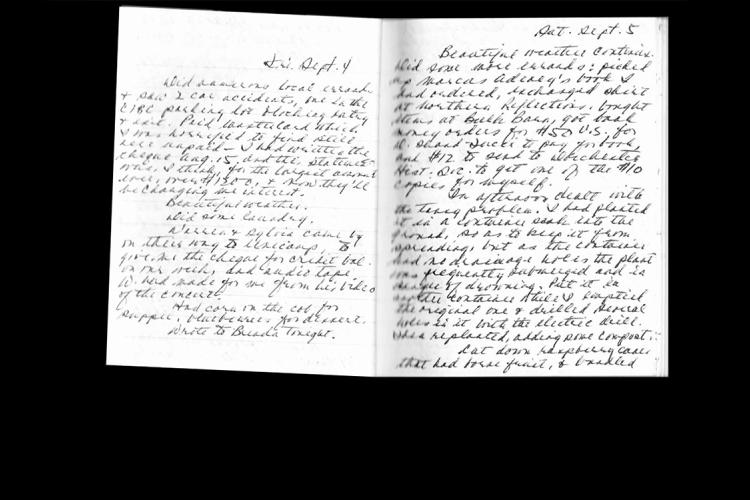 Fri. Sept. 4
Did numerous local errands
& saw 2 car accidents, one in the
CIBC parking lot blocking entry
& exit. Paid Mastercard which
I was horrified to find still
was unpaid - I had written the
cheque Aug. 15, and the statement
was, I think, for the largest amount
ever, over $1300, & now they'll
be charging me interest.
Beautiful weather.
Did some laundry.
Warren & Sylvia came by
on their way to to
give me the cheque for cricket
on our and audio tape
W. had made for me from his video
of the concert.
Had corn on the cob for
supper, blueberries for dessert.
Wrote to Brenda tonight.
Sat. Sept. 5
Beautiful weather continues.
Did some more errands: picked
up Marcus Adeney's book I
had ordered, exchanged shirt
at Northern Reflections, bought
items at Bulk Barn, got bank
money orders for $50 U.S. for
to pay for book
and $12 to send to
Hist. Soc. to get one of the $10
copies for myself.
In afternoon dealt with
the tansy problem. I had planted
it in a container sunk into the
ground, so as to keep it from
spreading, but as the container
had no drainage holes the plant
was frequently submerged and in
danger of drowning. Put it in
another container while I emptied
the original one & drilled several
holes in it with the electric drill.
Then replanted, adding some compost.
Cut down raspberry canes
that had borne fruit, & bundled